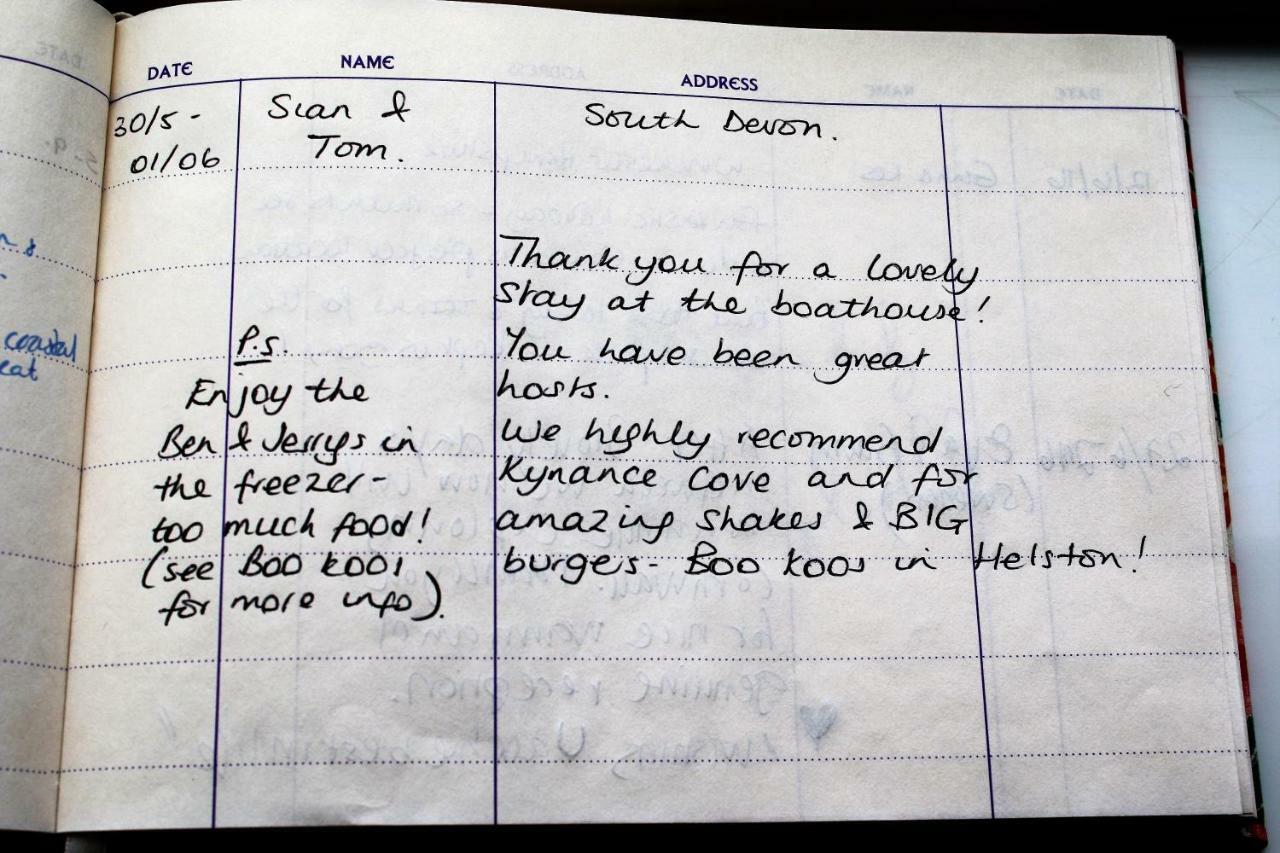 DATE NAME ADDRESS
30/5 -
01/06
Sian &
Tom.
South Devon.
Thank you for a lovely
stay at the boathouse!
You have been great
hosts.
We highly recommend
Kynance Cove and for
amazing shakes & BIG
burgers - Boo Koos in Helston!
P.s.
Enjoy the
Ben & Jerrys in
the freezer -
too much food!
(see Boo koos
for more info).
coastal
eat